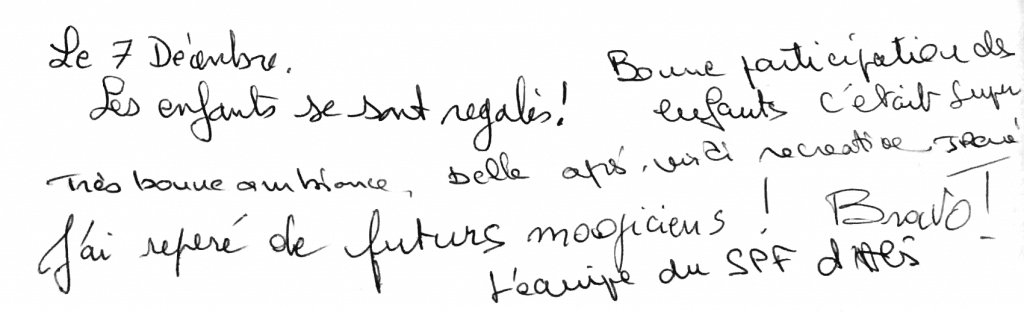 Le 7 Décembre.
Bonne participation des
Les enfants se sont regalés!
enfants c'était super
Très bonne ambiance, belle après-midi recreative
J'ai reperé de futurs magiciens ! Bravo !
L'équipe du SPF d'Alès